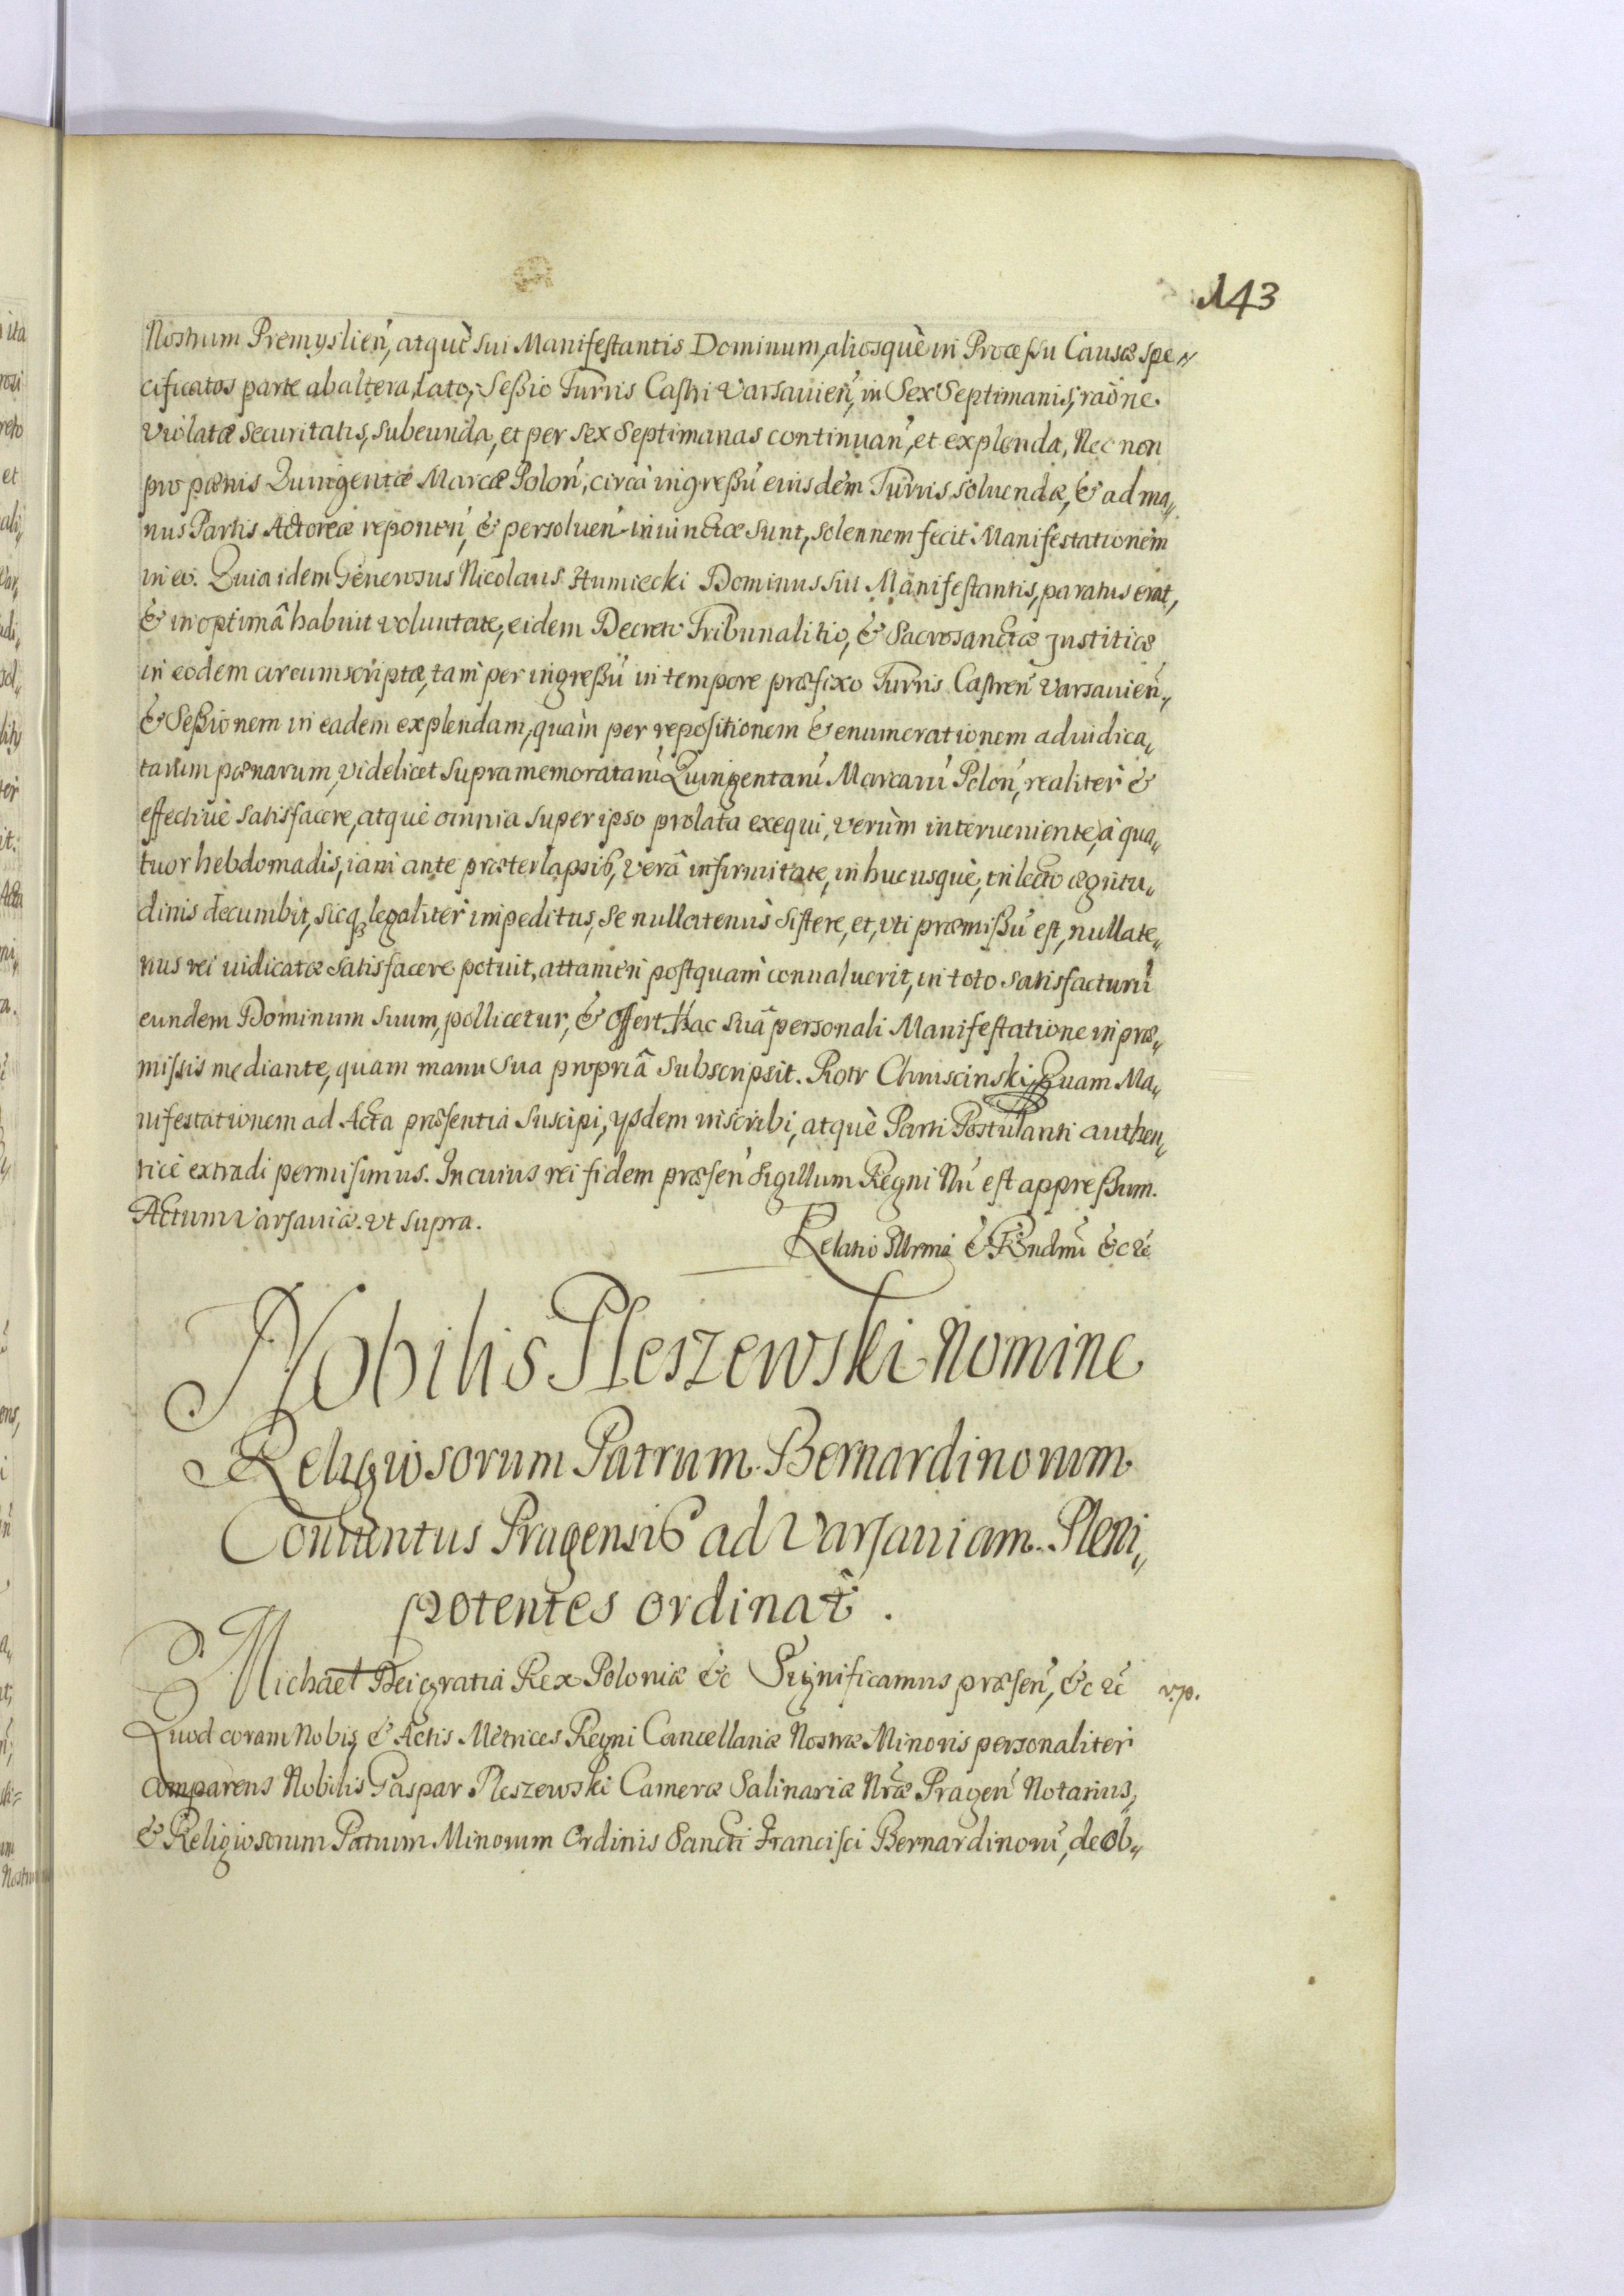 143
Nostrum Premyslien, atquè sui Manifestantis Dominum, aliosquè in Processu Causæ spe„
cificatos parte ab altera, lato, Sessio Turris Castri Varsauien, in Sex Septimanis, raõne
violatæ securitatis, subeunda, et per sex septimanas continuan, et explenda, Nec non
pro pænis Quingentæ Marcæ Polon, circa ingressũ eiusdem Turris, soluendæ, & ad ma„
nus Partis Actoreæ reponen, & persoluen iniunctæ sunt, solennem fecit Manifestationem
in eo. Quia idem Generosus Nicolaus Humiecki Dominus sui Manifestantis, paratus erat,
& in optimâ habuit voluntate, eidem Decreto Tribunalitio, & Sacrosanctæ Justitiæ
in eodem circumscriptæ, tam per ingressũ in tempore præfixo Turris Castren Varsauien„
& Sessionem in eadem explendam, quàm per repositionem & enumerationem adiudica„
tarum pænarum, videlicet supramemoratarũ Quingentarũ Marcarũ Polon, realiter &
effectiuè satisfacere, atquè omnia super ipso prolata exequi, verùm interueniente, à qua„
tuor hebdomadis, iam ante præterlapsis, verâ infirmitate, in hucusquè, in lecto ægritu„
dinis decumbit, sicq legaliter impeditus, se nullatenus sistere, et, vti præmissũ est, nullate„
nus rei iudicatæ satisfacere potuit, attamen postquam conualuerit, in toto satisfacturũ
eundem Dominum suum, pollicetur, & offert. Hac suâ personali Manifestatione in præ„
missis mediante, quam manu sua propriâ subscripsit. Piotr Chruscinski, Quam Ma„
nifestationem ad Acta præsentia suscipi, ysdem inscribi, atquè Parti Postulanti authen„
ticè extradi permisimus. In cuius rei fidem præsen sigillum Regni Nrũ est appressum.
Actum Varsauiæ. vt supra.
Relatio Illrmi & Rndmi &c &c
Nobilis Pleszewski Nomine
Religiosorum Patrum Bernardinorum
Conuentus Pragensis ad Varsauiam Pleni„
potentes ordinat.
Michael Dei gratia Rex Poloniæ &c Significamus præsen, &c &c
v. p.
Quod coram Nobis, & Actis Metrices Regni Cancellariæ Nostræ Minoris personaliter
comparens Nobilis Gaspar Pleszewski Cameræ Salinariæ Nræ Pragen Notarius,
& Religiosorum Patrum Minorum Ordinis Sancti Francisci Bernardinorũ, de Ob„